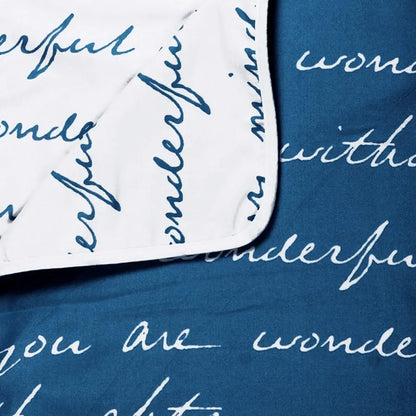 erful
wonde
erful
wonderful
wond
witho
wonderfu
you are wonde